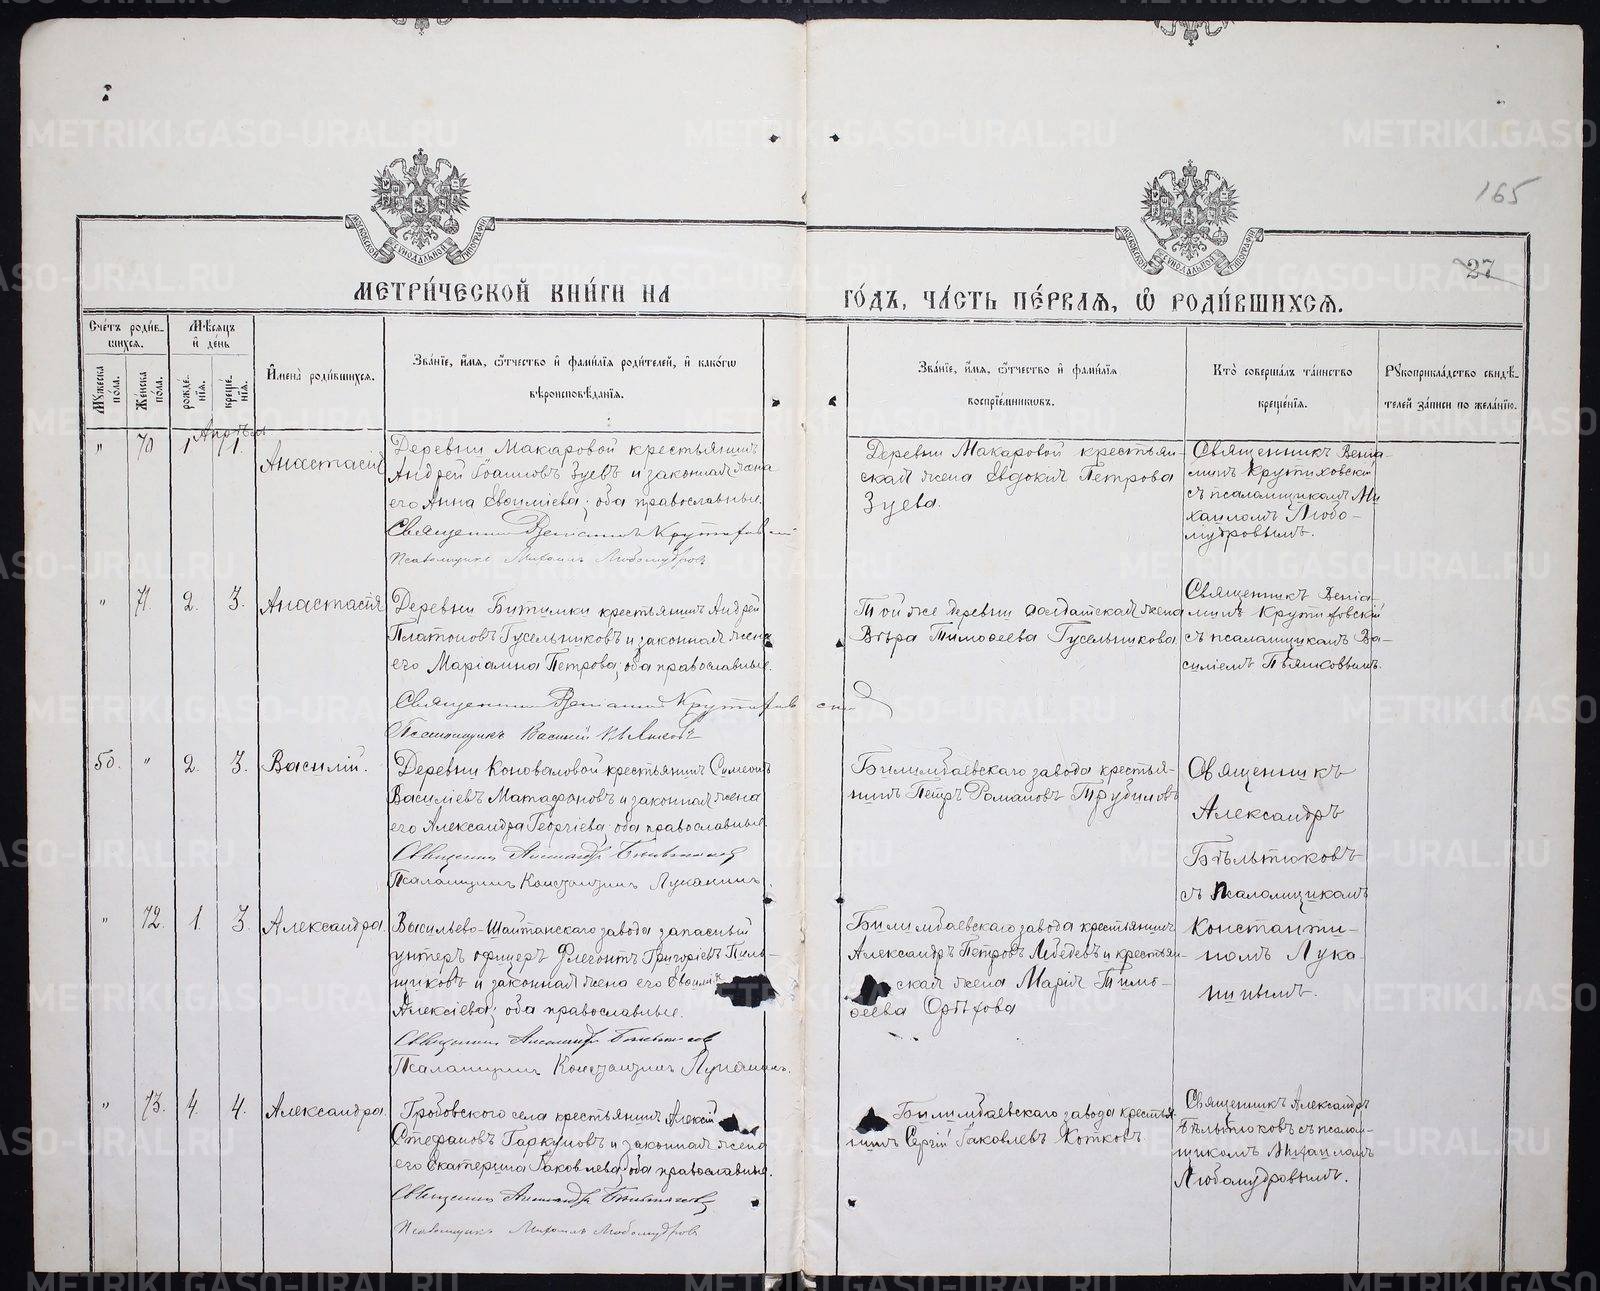 165
27
МОСКОВСКОЙ СѴНОДАЛЬНОЙ ТИПОГРАФІИ
МОСКОВСКОЙ СѴНОДАЛЬНОЙ ТИПОГРАФІИ
МЕТРИ́ЧЕСКОЙ КНИ́ГИ НА
ГО́ДЪ, ЧА́СТЬ ПЕ́РВАЯ, Ѡ РОДИ́ВШИХСЯ.
Сче́тъ роди́в-
шихся.
Мꙋжеска по́ла.
Же́нска по́ла.
Мѣсяцъ
и де́нь
рожде́нія.
креще́нія.
Имена̀ роди́вшихся.
Зва́ніе, и́мя, ѻ҆́тчество и фами́лія роди́телей, и како́гѡ
вѣроисповѣ́данія.
Зва́ніе, и́мя, ѻ҆́тчество и фами́лія
воспрiе́мникѡвъ.
Кто̀ соверша́лъ та́инство
креще́нія.
Рꙋкоприкла́дство свидѣ́-
телей за́писи по жела́нію.
Апрѣль
" 70 1 1. Анастасія
Деревни Макаровой крестьянинъ
Андрей Іоанновъ Зуевъ и законная жена
его Анна Евѳиміева; оба православные.
Священникъ Веніаминъ Крутиховскій
Псаломщикъ Михаилъ Любомудровъ
Деревни Макаровой крестьян-
ская жена Евдокія Петрова
Зуева.
Священникъ Веніа-
минъ Крутиховскій
съ псаломщикомъ Ми
хаиломъ Любо-
мудровымъ.
" 71. 2. 3. Анастасія
Деревни Битимки крестьянинъ Андрей
Платоновъ Гусельниковъ и законная жена
его Маріанна Петрова; оба православные.
Священникъ Веніаминъ Крутиховскій
Псаломщикъ Василій Пьянковъ
Той же деревни солдатская жена
Вѣра Тимоѳеева Гусельникова
Священникъ Веніа-
минъ Крутиховскій
съ псаломщикомъ Ва-
силіемъ Пьянковымъ.
50. " 2. 3. Василій.
Деревни Коноваловой крестьянинъ Симеонъ
Василіевъ Матафоновъ и законная жена
его Александра Георгіева; оба православные.
Священникъ Александръ Бѣльтюковъ
Псаломщикъ Константинъ Луканинъ.
Билимбаевскаго завода крестья-
нинъ Петръ Романовъ Трубиловъ
Священникъ
Александръ
Бѣльтюковъ
съ псаломщикомъ
Константи-
номъ Лука-
нинымъ.
" 72. 1. 3. Александра.
Васильево-Шайтанскаго завода запасный
унтеръ офицеръ Флегонтъ Григоріевъ Пиль-
щиковъ и законная жена его
Алексіева; оба православные.
Священникъ Александръ Бѣльтюковъ
Псаломщикъ Константинъ Луканинъ.
Билимбаевскаго завода крестьянинъ
Александръ Петровъ Лебедевъ и крестьян-
ская жена Марія Тимо-
ѳеева Орѣхова
" 73. 4. 4. Александра.
Гробовского села крестьянинъ Алексій
Стефановъ Гаркуновъ и законная жена
его Екатерина Іаковлева; оба православные.
Священникъ Александръ Бѣльтюковъ
Псаломщикъ Михаилъ Любомудровъ
Билимбаевскаго завода крестья-
нинъ Сергій Іаковлевъ Котковъ.
Священникъ Александръ
Бѣльтюковъ съ псалом-
щикомъ Михаиломъ
Любомудровымъ.
METRIKI.GASO-URAL.RU